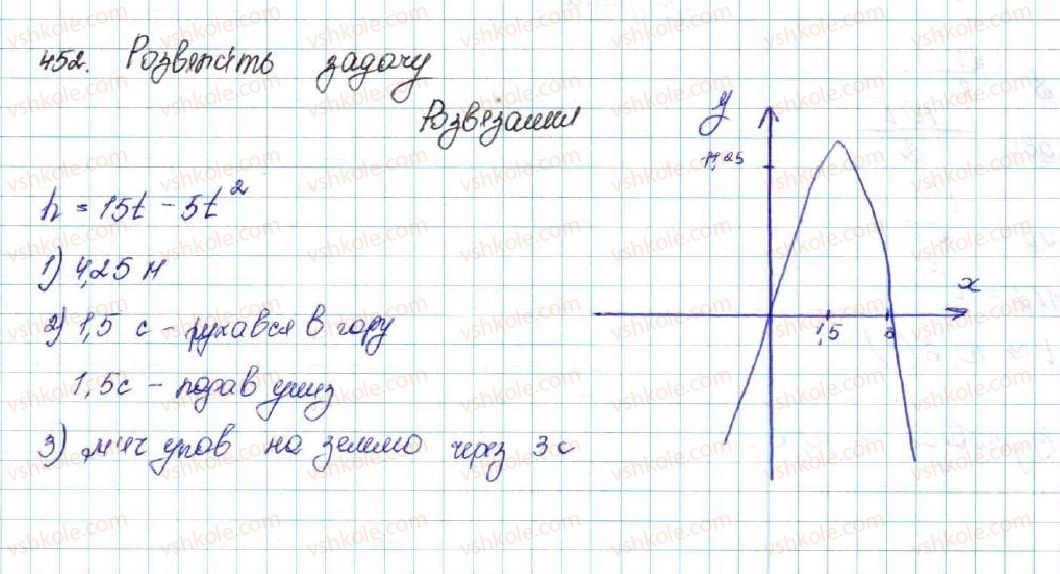 452. Розвяпсіть задачу
Розвязання
h = 15t - 5t²
1) 4,25 м
2) 1,5 с - рухався в гору
1,5с - подав униз
3) м'яч упав на землю через 3 с
y
11,25
x
1,5
3
vshkole.com